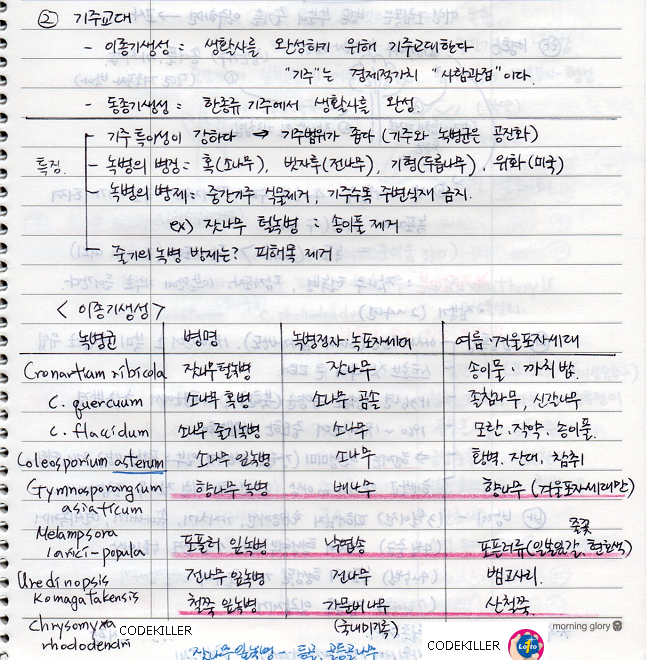 ② 기주교대
- 이종기생성 : 생활사를 완성하기 위해 기주교대한다
"기주"는 경제적가치 "사람관점"이다.
- 동종기생성 : 한종류 기주에서 생활사를 완성.
특징.
기주 특이성이 강하다 ⇒ 기주범위가 좁다 (기주와 녹병균은 공진화)
- 녹병의 병징 : 혹(소나무), 빗자루(전나무), 기형(두릅나무), 위화(미국)
- 녹병의 방제 : 중간기주 식물제거, 기주수목 주변식재 금지.
ex) 잣나무 털녹병 : 송이풀 제거
줄기의 녹병 방제는? 피해목 제거
< 이종기생성 >
녹병균 병명 녹병정자·녹포자세대 여름·겨울포자세대
Cronartium ribicola 잣나무털녹병 잣나무 송이풀·까치밥.
C. quercuum 소나무 혹병 소나무·곰솔 졸참나무, 신갈나무
C. flaccidum 소나무 줄기녹병 소나무 모란·작약·송이풀.
Coleosporium asterum 소나무 잎녹병 소나무 황벽. 잔대, 참취
Gymnosporangium asiaticum 향나무 녹병 배나무 향나무 (겨울포자세대만)
Melampsora larici-popula 포플러 잎녹병 낙엽송 포플러류
줄꽃
Uredinopsis komagatakensis 전나무 잎녹병 전나무 뱀고사리.
Chrysomyxa rhododendri 철쭉 잎녹병 가문비나무 산철쭉.
(국내미기록)
morning glory
CODEKILLER
CODEKILLER
Lotto
잣나무 잎녹병 -